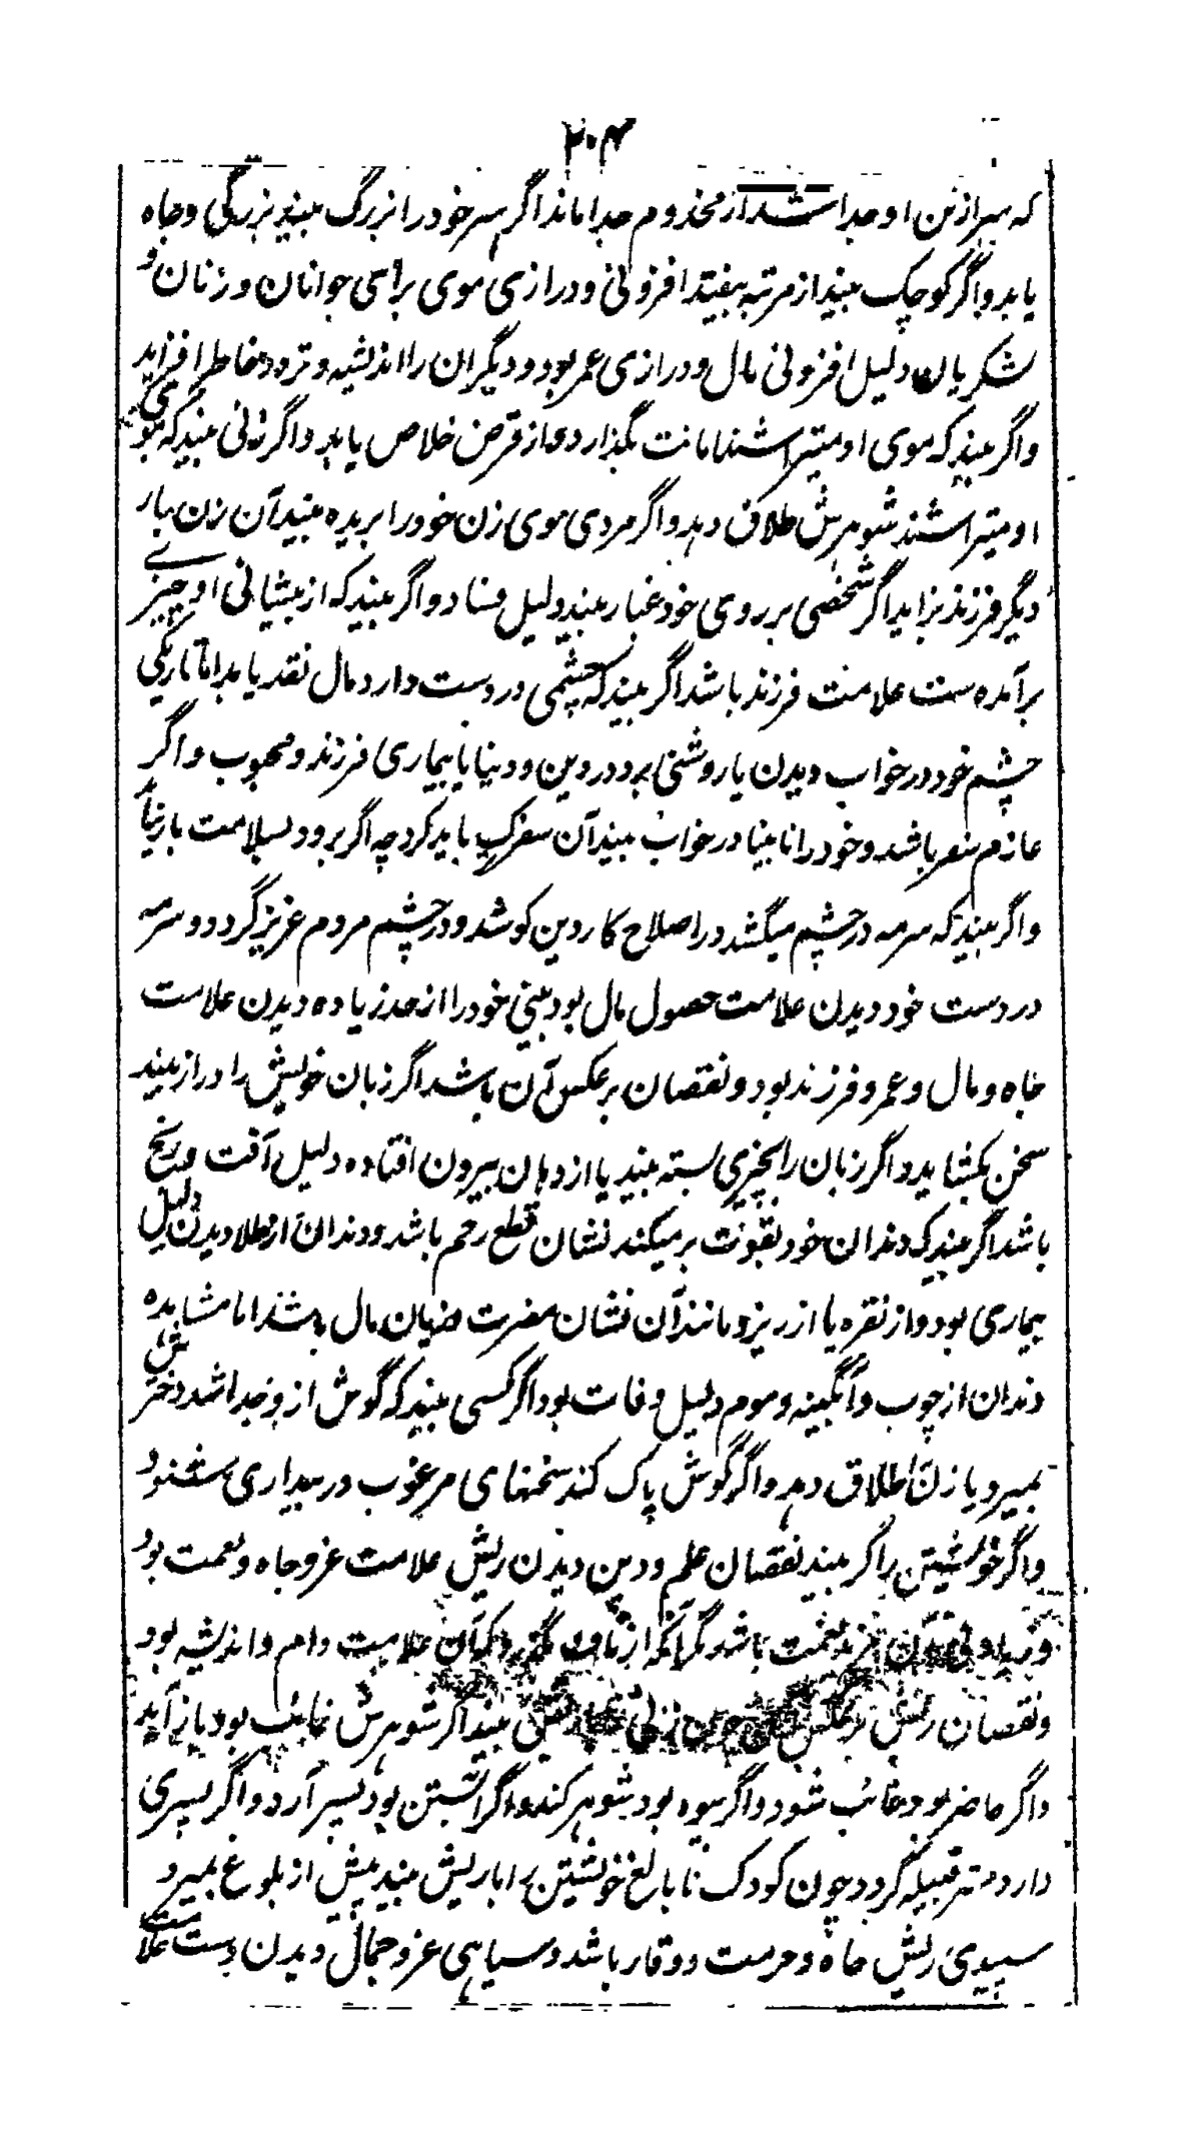 ۲۰۴
که سر از تن او جدا شد از مخدوم جدا ماند اگر سر خود را بزرگ بیند بزرگی و جاه
یابد و اگر کوچک بیند از مرتبه بیفتد افزونی و درازی موی برای جوانان و زنان و
لشکریان دلیل افزونی مال و درازی عمر بود و دیگران را اندیشه و تردد خاطر افزاید
و اگر بیند که موی او میتراشند امانت بگذارد و از قرض خلاص یابد و اگر زنی بیند که موی
او میتراشند شوهرش طلاق دهد و اگر مردی موی زن خود را بریده بیند آن زن بار
دیگر فرزند نزاید اگر شخصی بر روی خود غبار بیند دلیل فساد و اگر بیند که از پیشانی او چیزے
برآمده ست علامت فرزند باشد اگر بیند که چشمی در دست دارد مال نقد یابد اما تاریکی
چشم خود در خواب دیدن یا روشنی برد در دین و دنیا یا بیماری فرزند و محبوب و اگر
عازم سفر باشد و خود را نابینا در خواب بیند آن سفر باید کرد چه اگر برود بسلامت باز نیاید
و اگر بیند که سرمه در چشم میکشد در اصلاح کار دین کوشد و در چشم مردم عزیز گردد و سرمه
در دست خود دیدن علامت حصول مال بود بینی خود را از حد زیاده دیدن علامت
جاه و مال و عمر و فرزند بود و نقصان برعکس آن باشد اگر زبان خویش را دراز بیند
سخن بکشاید و اگر زبان را بچیزی بسته بیند یا از دهان بیرون افتاده دلیل آفت و رنج
باشد اگر بیند که دندان خود بقوت بر میکند نشان قطع رحم باشد و دندان از طلا دیدن دلیل
بیماری بود و از نقره یا ارزیز و مانند آن نشان مضرت و زیان مال باشد اما مشاهده
دندان از چوب و آبگینه و موم دلیل وفات بود اگر کسی بیند که گوش از وی جدا شد دخترش
بمیرد یا زن را طلاق دهد و اگر گوش پاک کند سخنهای مرغوب در بیداری شنود
و اگر خویشتن را کر بیند نقصان علم و دین دیدن ریش علامت عز و جاه و نعمت بود
و زیادتی آن مزید نعمت باشد مگر آنکه از ناف بگذرد که آن علامت وام و اندیشه بود
و نقصان ریش برعکس آن چون زنی خود را ریش بیند اگر شوهرش غائب بود باز آید
و اگر حاضر بود غائب شود و اگر بیوه بود شوهر کند و اگر آبستن بود پسر آرد و اگر پسری
دارد مهتر قبیله گردد چون کودک نابالغ خویشتن را با ریش بیند پیش از بلوغ بمیرد
سپیدی ریش جاه و حرمت و وقار باشد و سیاهی عز و جمال و دیدن دست علامت